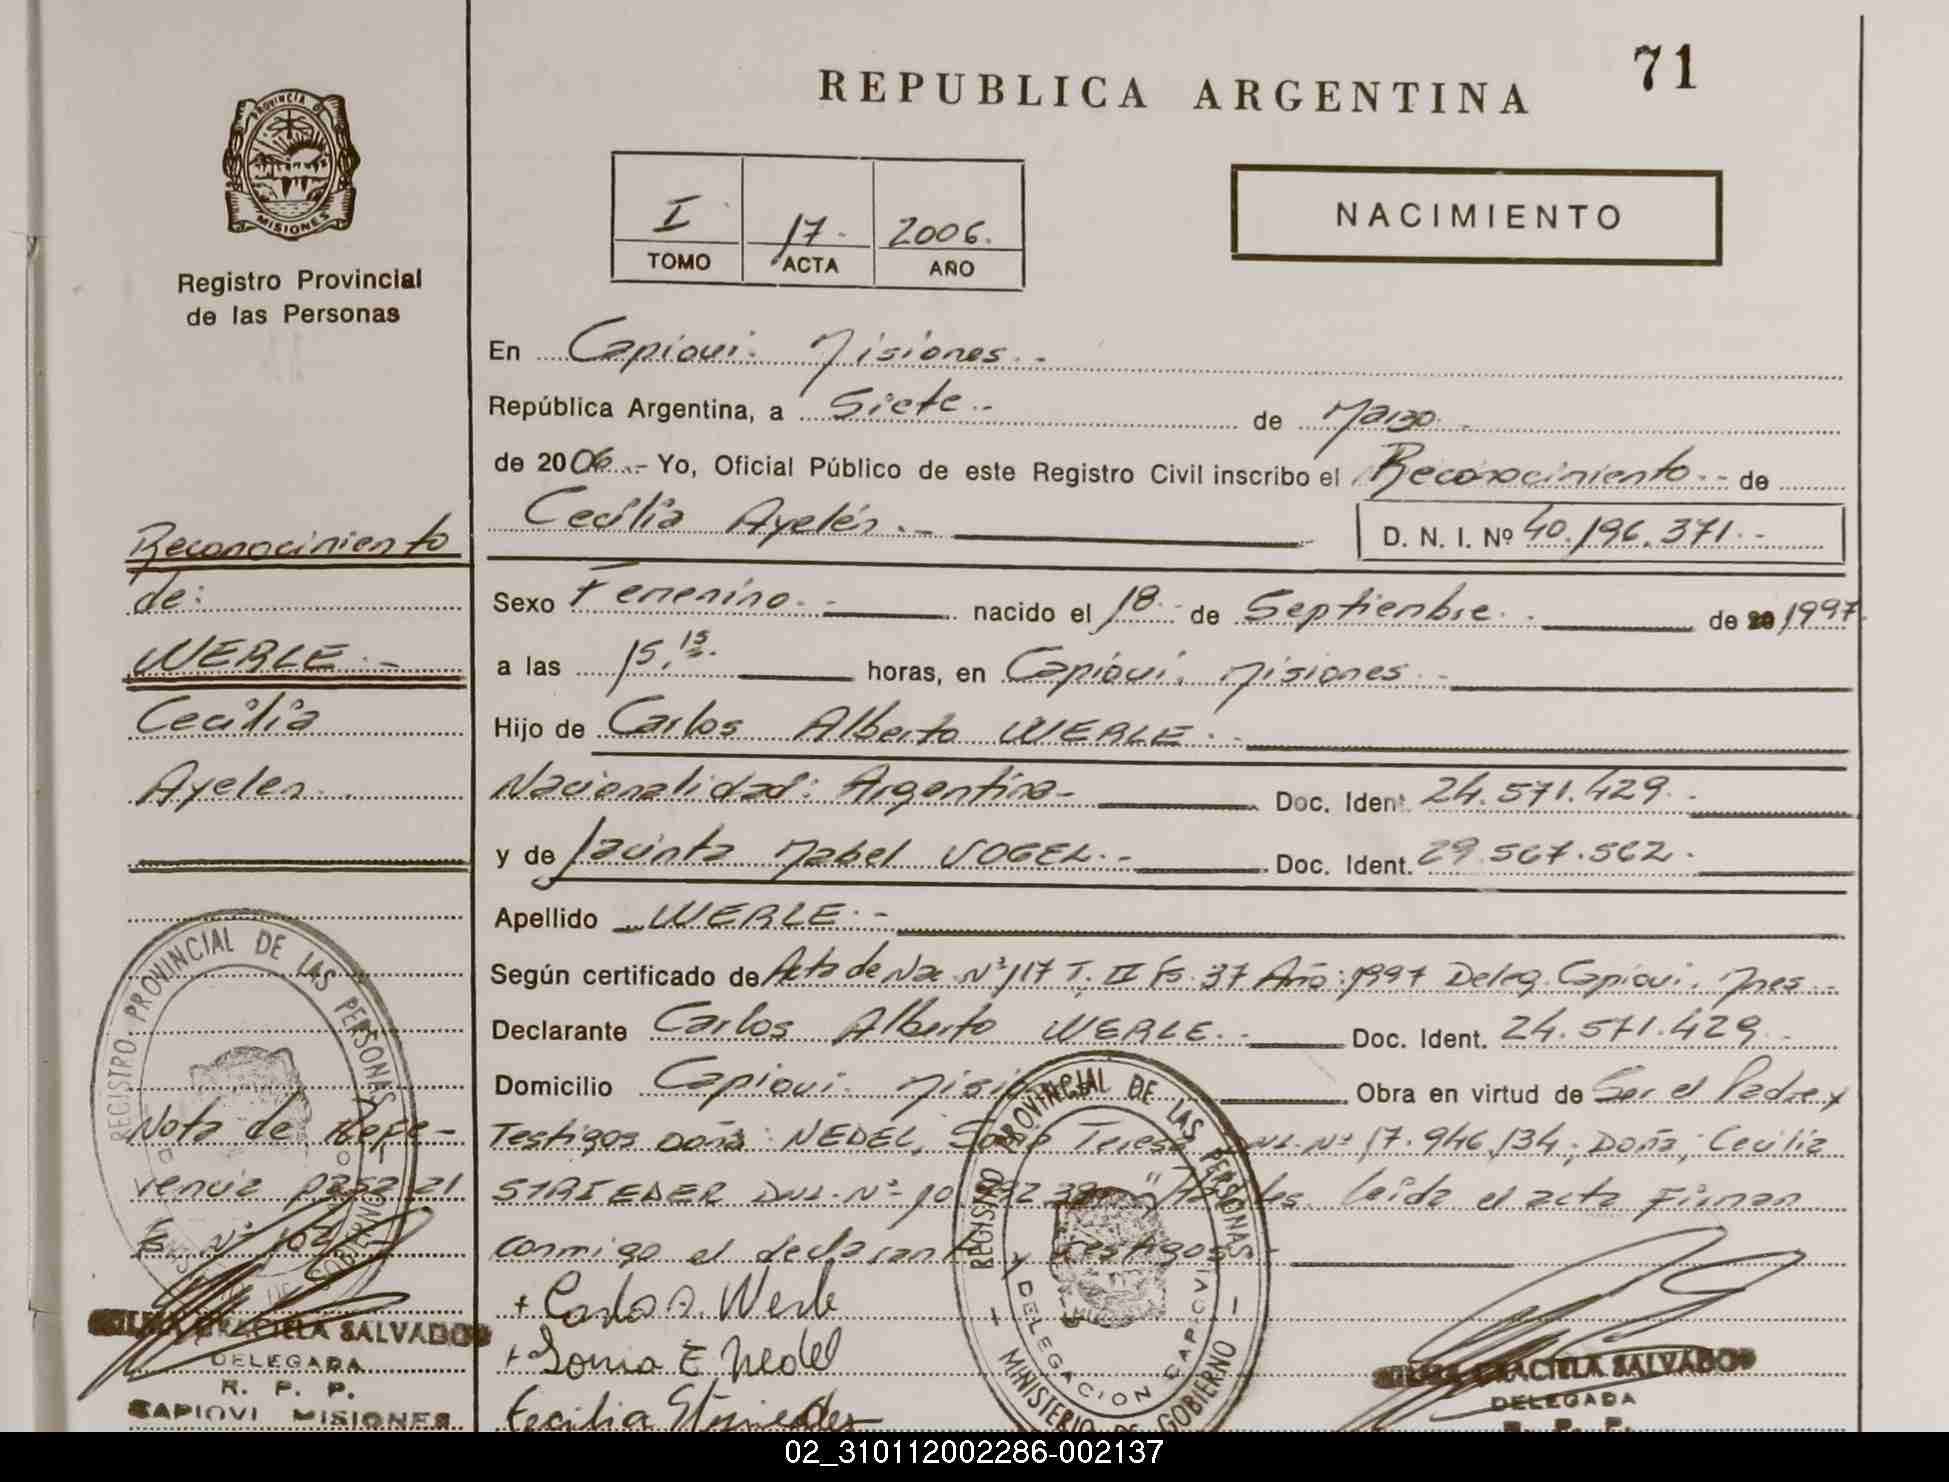 71
REPUBLICA ARGENTINA
PROVINCIA DE
MISIONES
Registro Provincial
de las Personas
I 17.- 2006.
TOMO ACTA AÑO
NACIMIENTO
En Capiovi. Misiones.-
República Argentina, a Siete.- de Marzo.-
de 2006.- Yo, Oficial Público de este Registro Civil inscribo el Reconocimiento.- de
Cecilia Ayelén.-
D. N. I. Nº 40.196.371.-
Sexo Femenino.- nacido el 18.- de Septiembre.- de 1997.
a las 15,15.- horas, en Capiovi. Misiones.-
Hijo de Carlos Alberto WERLE.-
Nacionalidad: Argentina- Doc. Ident. 24.571.429.-
y de Jacinta Mabel VOGEL.- Doc. Ident. 29.567.562.-
Apellido WERLE.-
Según certificado de Acta de Nac. Nº 117 T. II Fs. 37 Año: 1997 Deleg. Capiovi. Mnes-
Declarante Carlos Alberto WERLE.- Doc. Ident. 24.571.429.-
Domicilio Capiovi. Obra en virtud de Ser el Padre y
Testigos Doña: NEDEL, Teresa Nº 17.946.134; Doña; Cecilia
STRIEDER DNI.- Nº leida el acta Firman
conmigo el declarante y testigos.-
+ Carlos A. Werle
+ Sonia E Nedel
Cecilia Strieder
Reconocimiento
de:
WERLE.-
Cecilia
Ayelen.
Nota de Refe-
rencia pasa al
Fs Nº
REGISTRO PROVINCIAL DE LAS PERSONAS
GRACIELA SALVADOR
DELEGADA
R. P. P.
CAPIOVI MISIONES
REGISTRO PROVINCIAL DE LAS PERSONAS
DELEGACION CAPIOVI
MINISTERIO DE GOBIERNO
GRACIELA SALVADOR
DELEGADA
R. P. P.
02_310112002286-002137